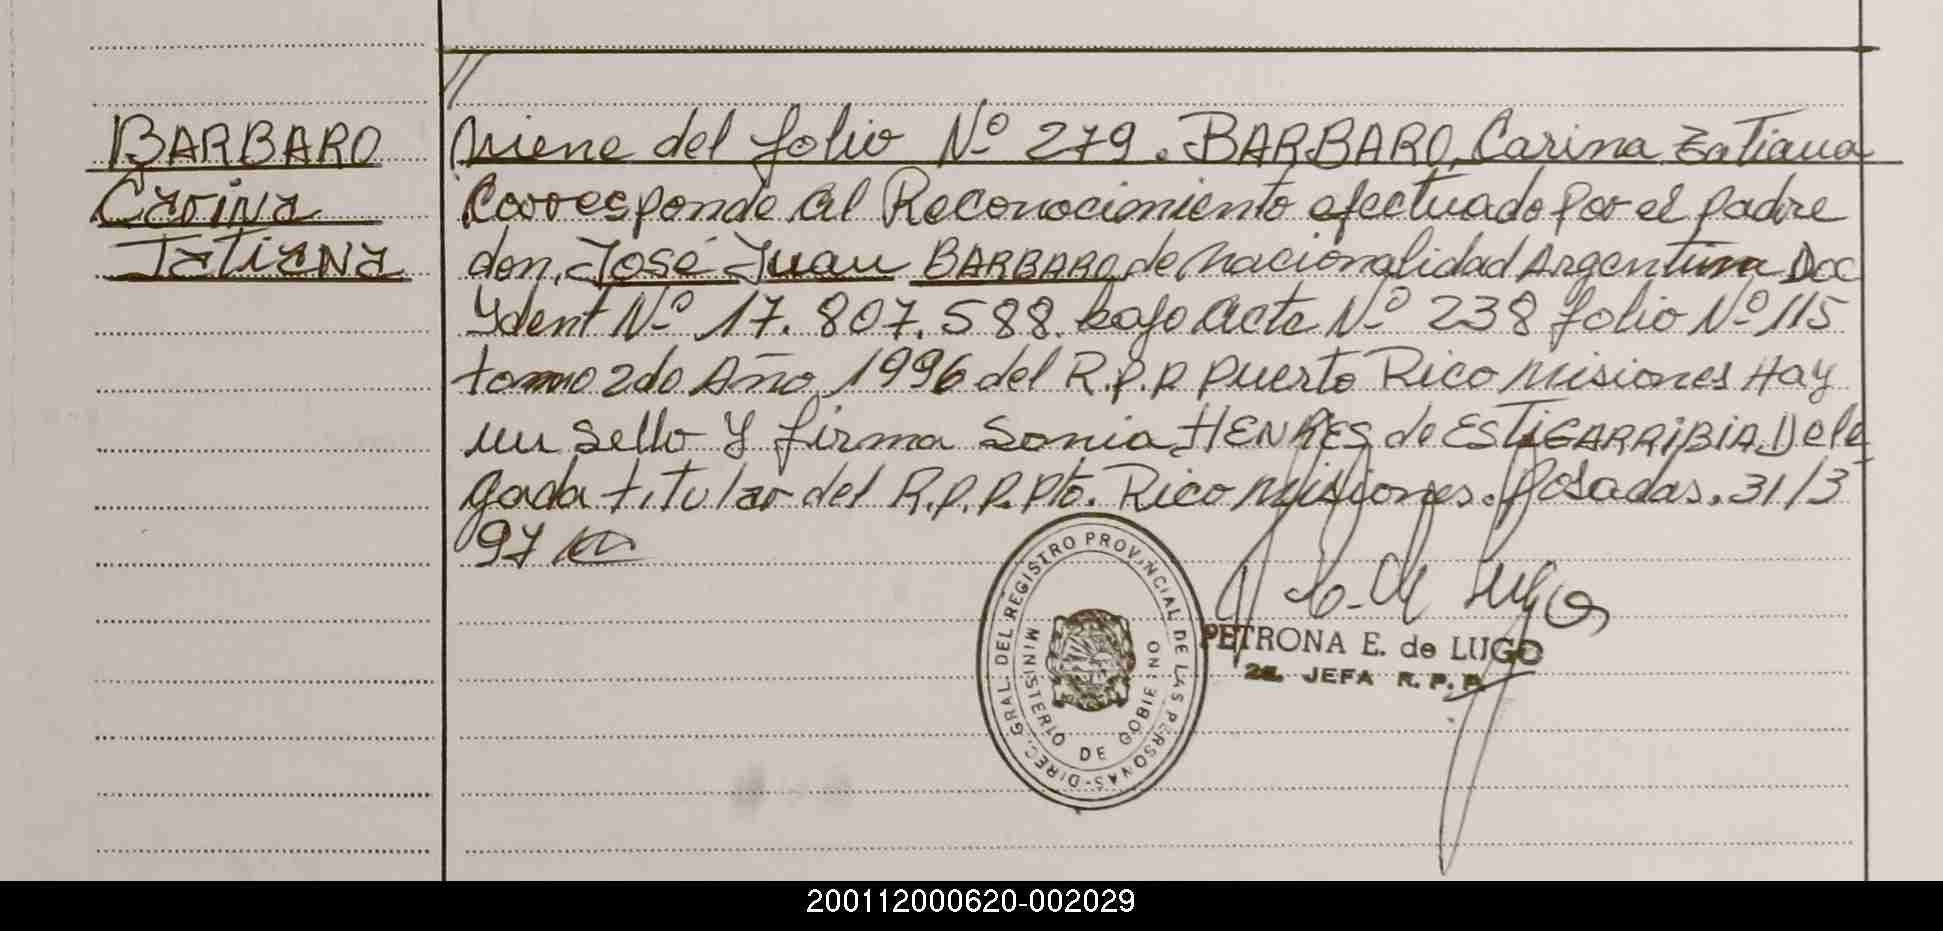 BARBARO
Carina
Tatiana
Viene del folio Nº 279. BARBARO, Carina Tatiana
Corresponde al Reconocimiento efectuado por el padre
don, José Juan BARBARO de nacionalidad Argentina Doc
Ydent Nº 17.807.588 bajo Acta Nº 238 folio Nº 115
tomo 2do Año 1996 del R.P.P Puerto Rico Misiones Hay
un Sello y firma Sonia HENRES de ESTIGARRIBIA Dele
gada titular del R.P.P. Pto. Rico Misiones. Posadas. 31/3
97
DIREC. GRAL. DEL REGISTRO PROVINCIAL DE LAS PERSONAS-
MINISTERIO DE GOBIERNO
PETRONA E. de LUGO
2da. JEFA R.P.P.
200112000620-002029